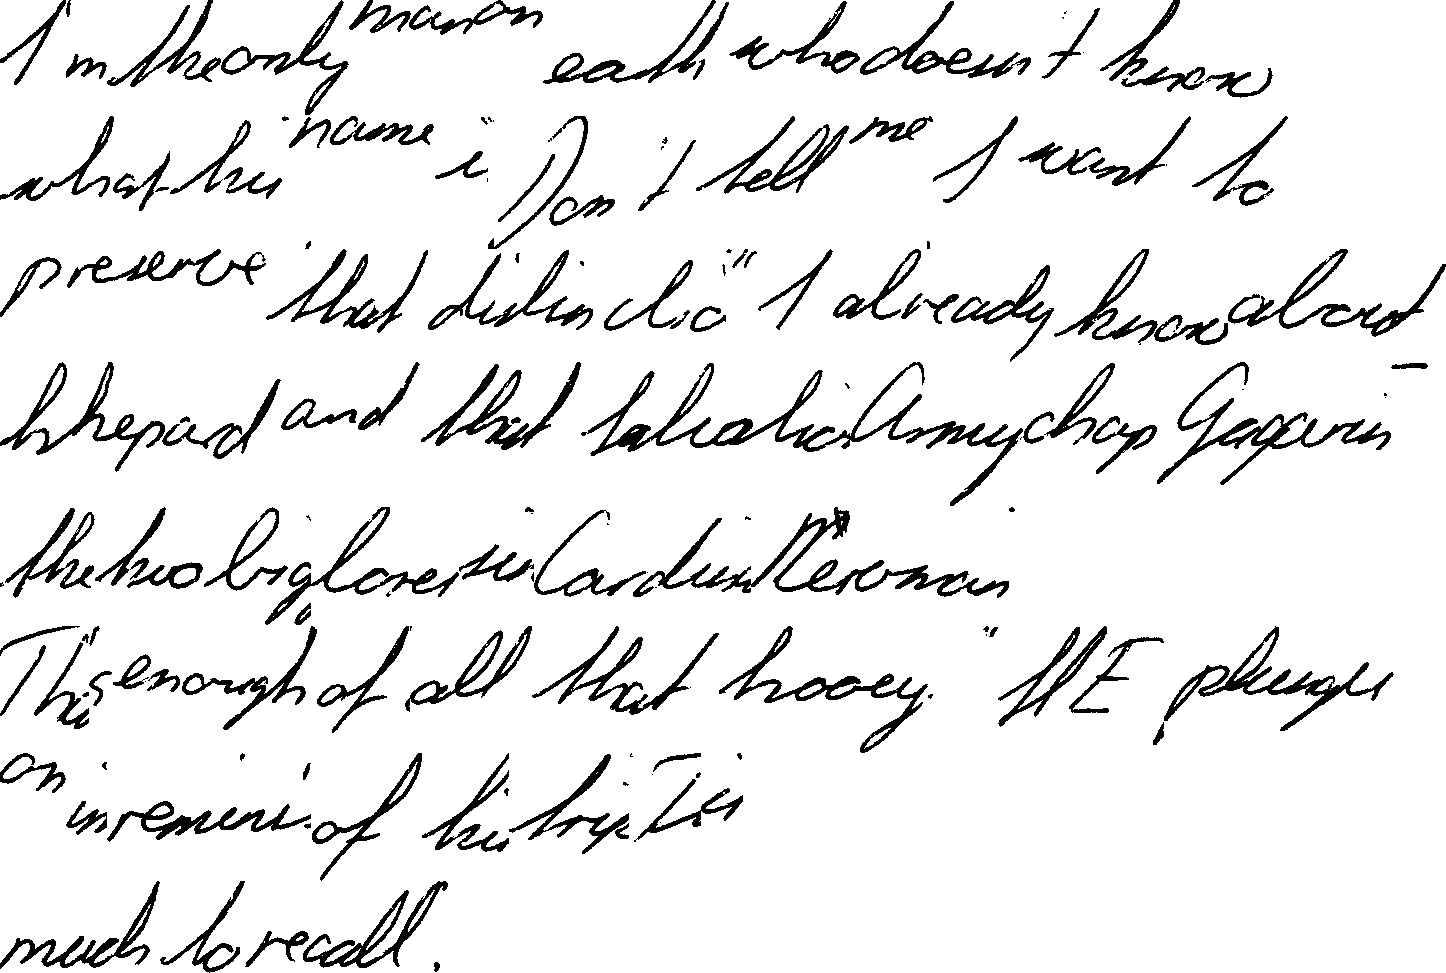 I'm the only man on earth who doesn't know
what his name is. Don't tell me I want to
preserve that distinctio" I already know about
Shepard and that Army chap Gagarin
the two big lovers in Cardinal
This enough of all that hooey." HE plunges
on in of his trip. It is
much to recall.